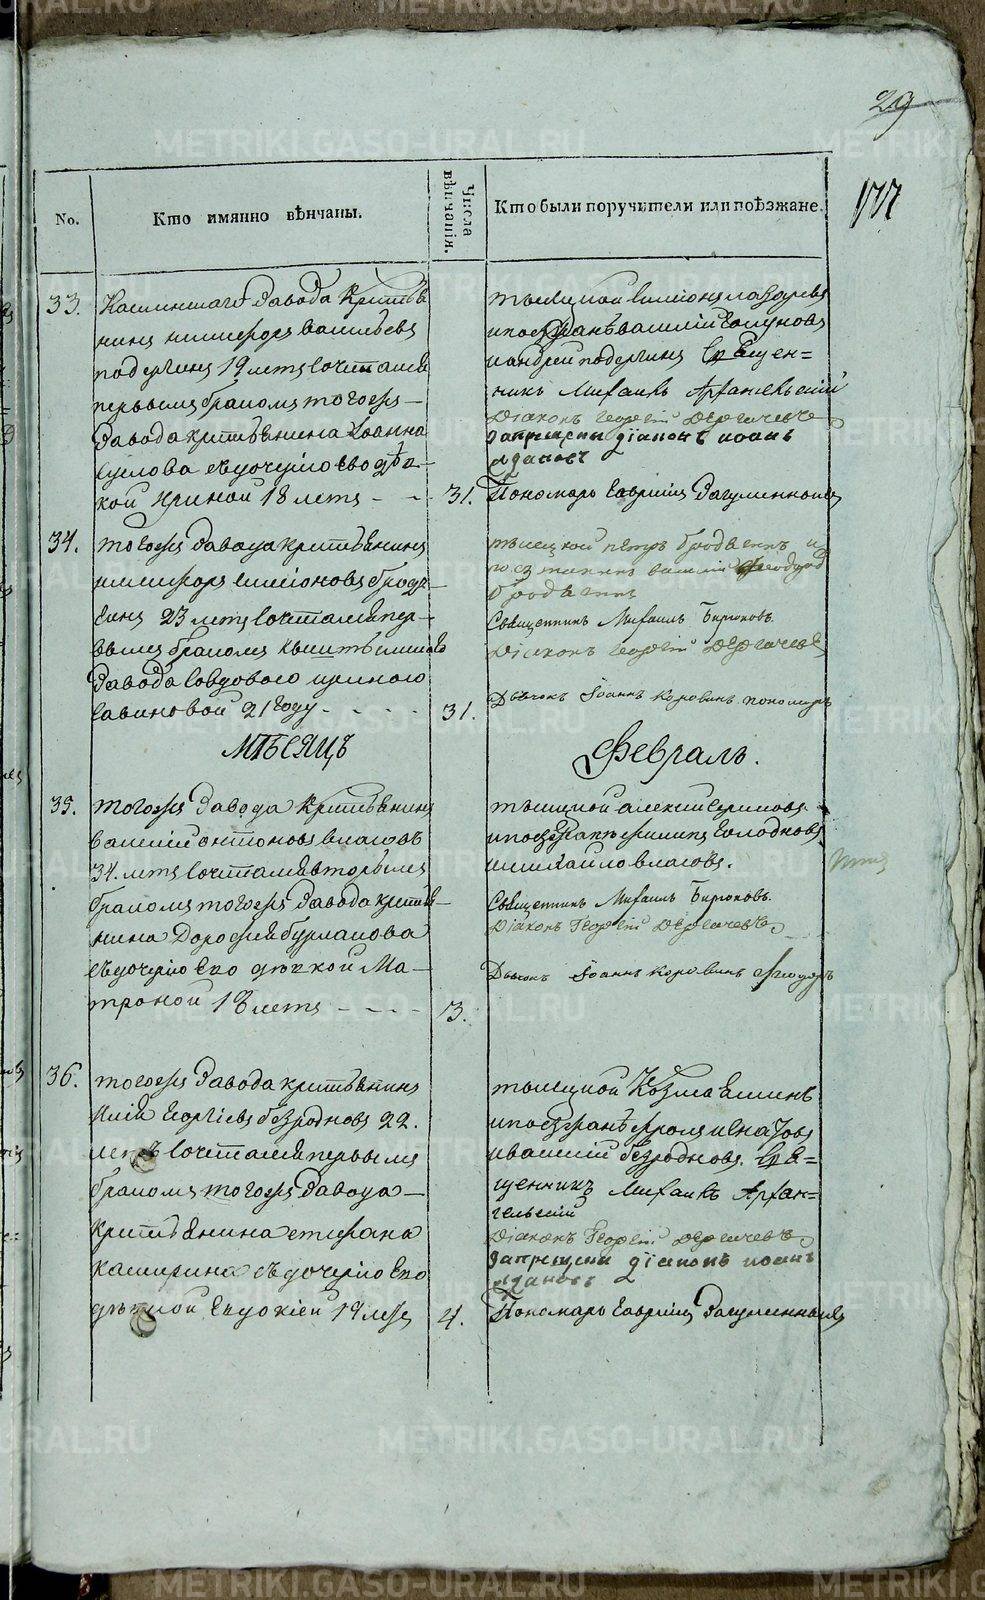 29
177
No.
Кто имянно вѣнчаны.
Числа вѣнчанія.
Кто были поручители или поѣзжане.
33.
Каслинскаго Завода крестья
нинъ никифоръ васильевъ
подергинъ 19 летъ сочтался
первымъ бракомъ тогожъ
Завода крестьянина Iоанна
съ дочерью ево дѣв
кой Ириной 18 летъ
31.
и андрей подергинъ Священ=
никъ Михаилъ Архангельскiй
Дiаконъ Георгiй Дергачевъ
Запрещенъ дiаконъ иоанъ
ждановъ
Пономарь Гаврiилъ
34.
тогожъ Завода крестьянинъ
никифоръ симiоновъ бродя
гинъ 23 летъ сочтался пер
вымъ бракомъ
Завода
Савиновой 21 году
31.
тысецкой петръ бродягинъ и
бродягинъ
Священникъ Михаилъ Бирюковъ.
Дiаконъ Георгiй Дергачевъ
Дьячокъ Iоаннъ Коровинъ пономарь
МѢСЯЦЪ
Февраль.
35.
тогожъ Завода крестьянинъ
василiй антоновъ власовъ
34. летъ сочтался вторымъ
бракомъ тогожъ Завода крестья
нина Дорофея бурлакова
съ дочерью ево дѣвкой Ма
троной 18 летъ
3.
тысецкой алексей
и поезжанъ филипъ Голодновъ
и михайло власовъ.
Священникъ Михаилъ Бирюковъ.
Дiаконъ Георгiй Дергачевъ
Дьячокъ Iоаннъ Коровинъ
36.
тогожъ Завода крестьянинъ
Илiя Георгiевъ безродновъ 22.
летъ сочтался первымъ
бракомъ тогожъ Завода
крестьянина стефана
каширина съ дочерью ево
дѣвкой Евдокiей 19 летъ
4.
тысецкой Козма
и поезжанъ фролъ игнатовъ
и василiй безродновъ. Свя=
щенникъ Михаилъ Архан=
гельскiй
Дiаконъ Георгiй Дергачевъ
Запрещенъ дiаконъ иоанъ
ждановъ
Пономарь Гаврiилъ
METRIKI.GASO-URAL.RU